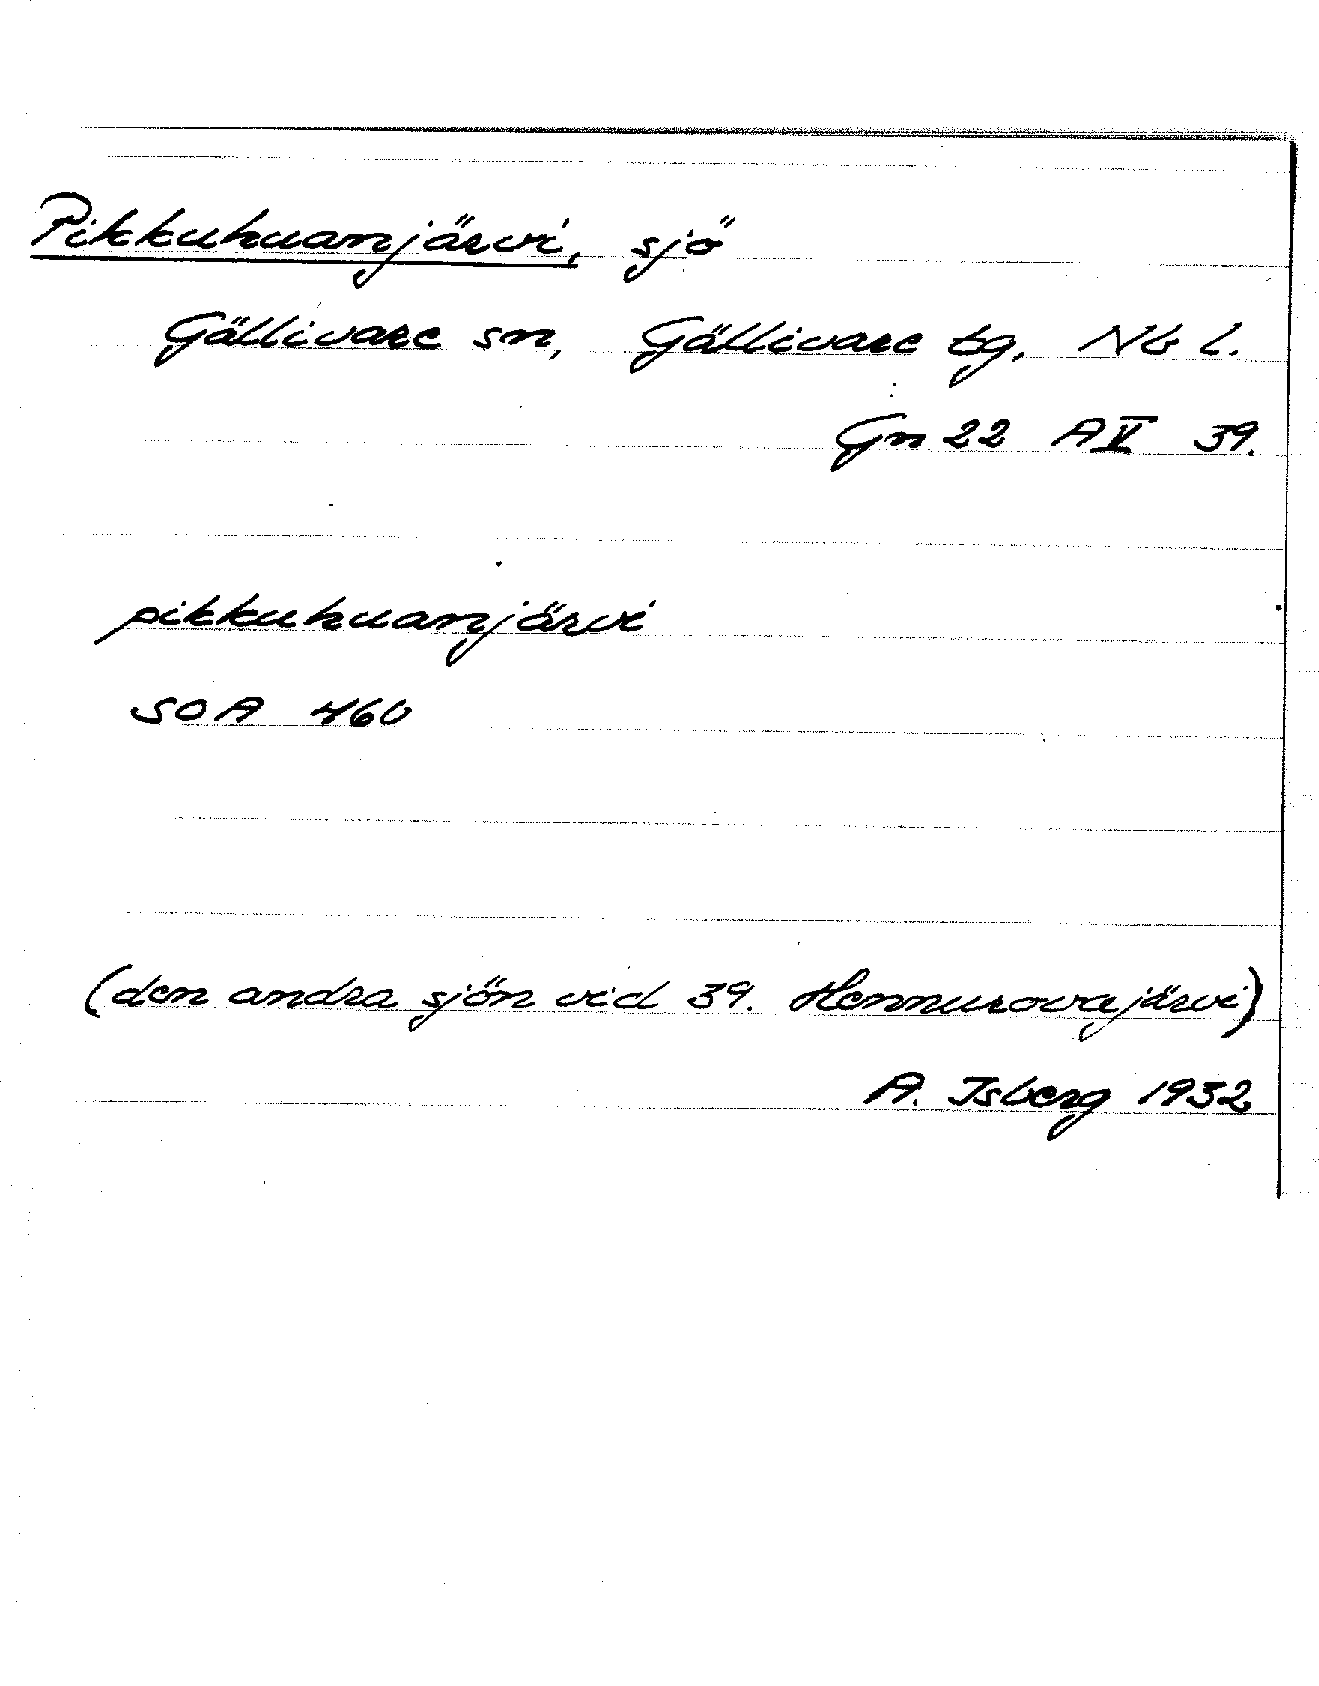 Pikkuhuanjärvi, sjö
Gällivare sn, Gällivare tg, Nb l.
Gn 22 A V 39.
pikkuhuanjärvi
SOA 460
(den andra sjön vid 39. Hennurovajärvi)
A. Isberg 1932